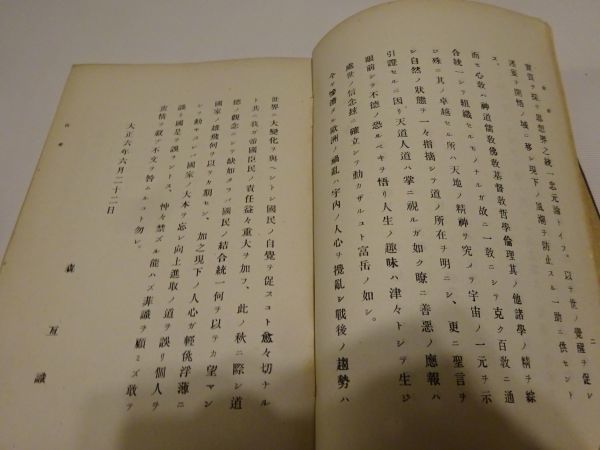 二
實質ヲ探テ思想界之統一悉元論トイフ。以テ世ノ覺醒ヲ促シ
迷妄ヲ開悟ノ域ニ移シ現下ノ風潮ヲ防止スル一助ニ供セント
ス。
而モ心敎ハ神道儒敎佛敎基督敎哲學倫理其ノ他諸學ノ精ヲ綜
合統一シテ組織セルモノナルガ故ニ一敎ニシテ克ク百敎ニ通
ジ殊ニ其ノ卓越セル所ハ天地ノ精神ヲ究メテ宇宙ノ一元ヲ示
シ自然ノ狀態ヲ一々指摘シテ道ノ所在ヲ明ニシ、更ニ聖言ヲ
引證セルニ因リ天道人道ハ掌ニ視ルガ如ク瞭ニ善惡ノ應報ハ
眼前シテ不德ノ恐ルベキヲ悟リ人生ノ趣味ハ津々トシテ生ジ
處世ノ信念玆ニ確立シテ動カザルコト富岳ノ如シ。
今ヤ慘澹タル歐洲ノ禍亂ハ宇內ノ人心ヲ攪亂シ戰後ノ趨勢ハ
世界ニ大變化ヲ與ヘントシ國民ノ自覺ヲ促スコト愈々切ナル
ト共ニ我ガ帝國臣民ノ責任益々重大ヲ加フ、此ノ秋ニ際シ道
德ノ觀念ニシテ缺如タラバ國民ノ結合統一何ヲ以テカ望マン
國家ノ雄飛何ヲ以テカ期セン、加之現下ノ人心ガ輕佻浮薄ニ
シテ動モスレバ國家ノ大本ヲ忘レ向上進取ノ道ヲ誤リ個人ヲ
謬リ國是ヲ誤ラントス、忡々禁ズル能ハズ非識ヲ顧ミズ敢テ
衷情ヲ叙ブ不文ヲ咎ムルコト勿レ。
大正六年六月二十二日
森 互識